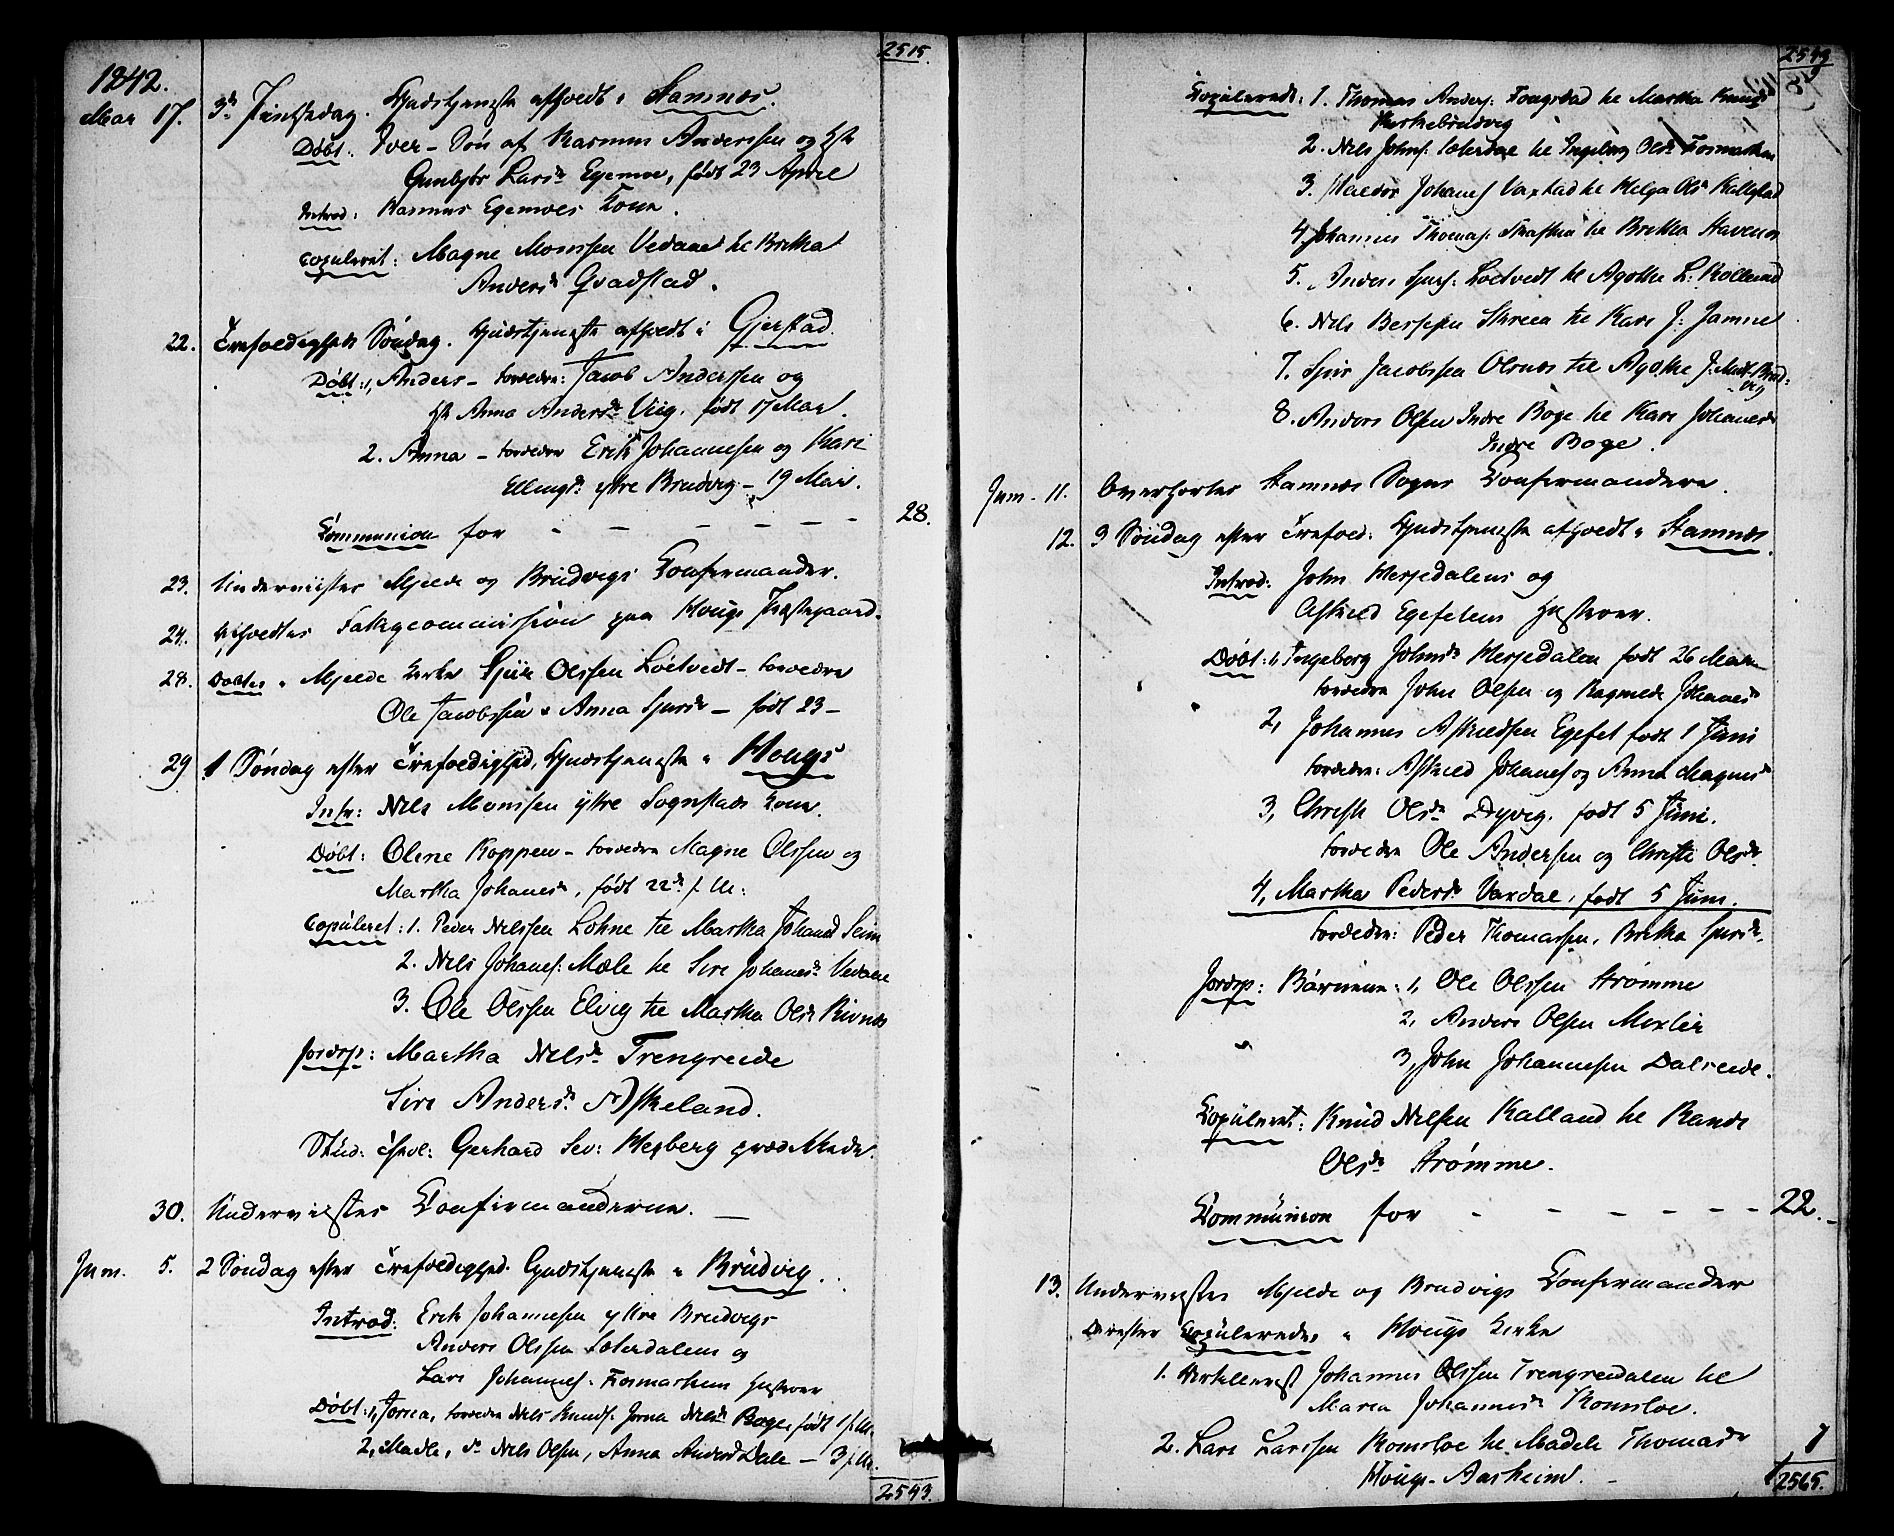 2515.
1842.
Mai 17. 3d. Pintsedag. Gudstjeneste afholdt i Stamnes.
Døbt: Iver - Søn af Rasmus Anderssen og Hst
Gunbjør Larsdr Egemoe, født 23 April
Introd: Rasmus Egemoes Kone.
copuleret: Magne Monssen Vedaae til Britha
Andersdr Quadstad.
22. Trefoldigheds Søndag. Gudstjeneste afholdt i Gjerstad.
Døbt: 1, Anders - Forældre: Jacob Anderssen og
Hst Anna Andersdr Viig. født 17 Mai.
2. Anna - Forældre Erik Johannesen og Kari
Ellingsdr ytre Brudvig - 19 Mai.
Communion for - - - - - - 28.
23. Underviistes Mjelde og Brudvigs Confirmander.
24. Afholdtes Fattigcommission paa Hougs Præstegaard.
28. Døbtes i Mjelde Kirke Sjur Olssen Loetvedt - Forældre
Ole Jacobssen & Anna Sjursdr - født 23 -
29 1 Søndag efter Trefoldighed, Gudstjeneste i Hougs
Intr: Nils Monssen ytre Sognstads Kone.
Døbt: Oline Koppen - Forældre Magne Olssen og
Martha Johanesdr, født 22d. f. M:
Copuleret: 1. Peder Nelssen Lohne til Martha Johanesd Seim
2. Nels Johanes: Mæle til Siri Johanesdr Vedaae
3. Ole Olssen Elvig til Martha Olsdr Bivnæs
Jordsp: Martha Nelsdr Trengreide
Siri Andersdr Askeland.
Stud: theol: Gerhard Sev: Heiberg præd
30. Underviistes Confirmanderne. —
Juni. 5. 2 Søndag efter Trefoldighed. Gudstjeneste i Brudvig.
Introd: Erik Johannesen ytre Brudvigs
Anders Olssen Sæterdalens og
Lars Johannes. Fosmarkens Hustruer
Døbt: 1, Jorna, Forældre Nils Knuds. Jorna Nelsdr Boge, født 1 f. M.
2, Madle, do Nels Olsen, Anna Andersd Dale - 3 f. M.
2543.
2543
Copulerede: 1. Thomas Anders: Fougstad til Martha Knudsd
Kirkebrudvig
2. Nils Johns. Sæterdal til Ingeborg Olsdr Fosmarken
3. Haldor Johanes Vaxdal til Helga Olsdr Kallestad
4, Johannes Thomas. til Britha Stavenes
5. Anders Sjurs: Loetvedt til Agathe L: Rolland
6. Nels Berssen Skreen til Kari J: Jamne
7. Sjur Jacobssen Olsnæs til Agathe J: Brud:
vig
8. Anders Olsen Indre Boge til Kari Johanesdr
Indre Boge.
Juni. 11. Overhørtes Stamnes Sogns Confirmandere.
12. 3 Søndag efter Trefold: Gudstjeneste afholdt i Stamnes.
Introd: John Hesjedalens og
Astved Egefetens Hustruer.
Døbt: 1, Ingeborg Johnsdr Hesjedalen født 26 Mai
Forældre John Olsen og Ragnilde Johanesdr
2, Johannes Astvedsen Egefet født 1 Juni
Forældre: Astved Johanes og Anna Magnesdr
3, Christi Olsdr Dyvig. født 5 Juni.
Forældre Ole Andersen og Christi Olsdr.
4, Martha Pedersdr Vaxdal, født 5 Juni.
Forældre: Peder Thomassen, Britha Sjursdr.
Jordsp: Børnene: 1, Ole Olssen Strømme
2, Anders Olsen
3, John Johannesen Dalseide.
Copuleret: Knud Nelsen Kalland til Randi
Olsdr Strømme.
Communion for - - - - - - 22.
13. Underviistes Mjelde og Brudvigs Confirmander
Derefter Copuleredes i Hougs Kirke
1. Johannes Olssen Trengreidalen til
Maria Johannesdr Romsloe.
2. Lars Larssen Romsloe til Madele Thomasdr
Hougs-Aarheim. -
2565.